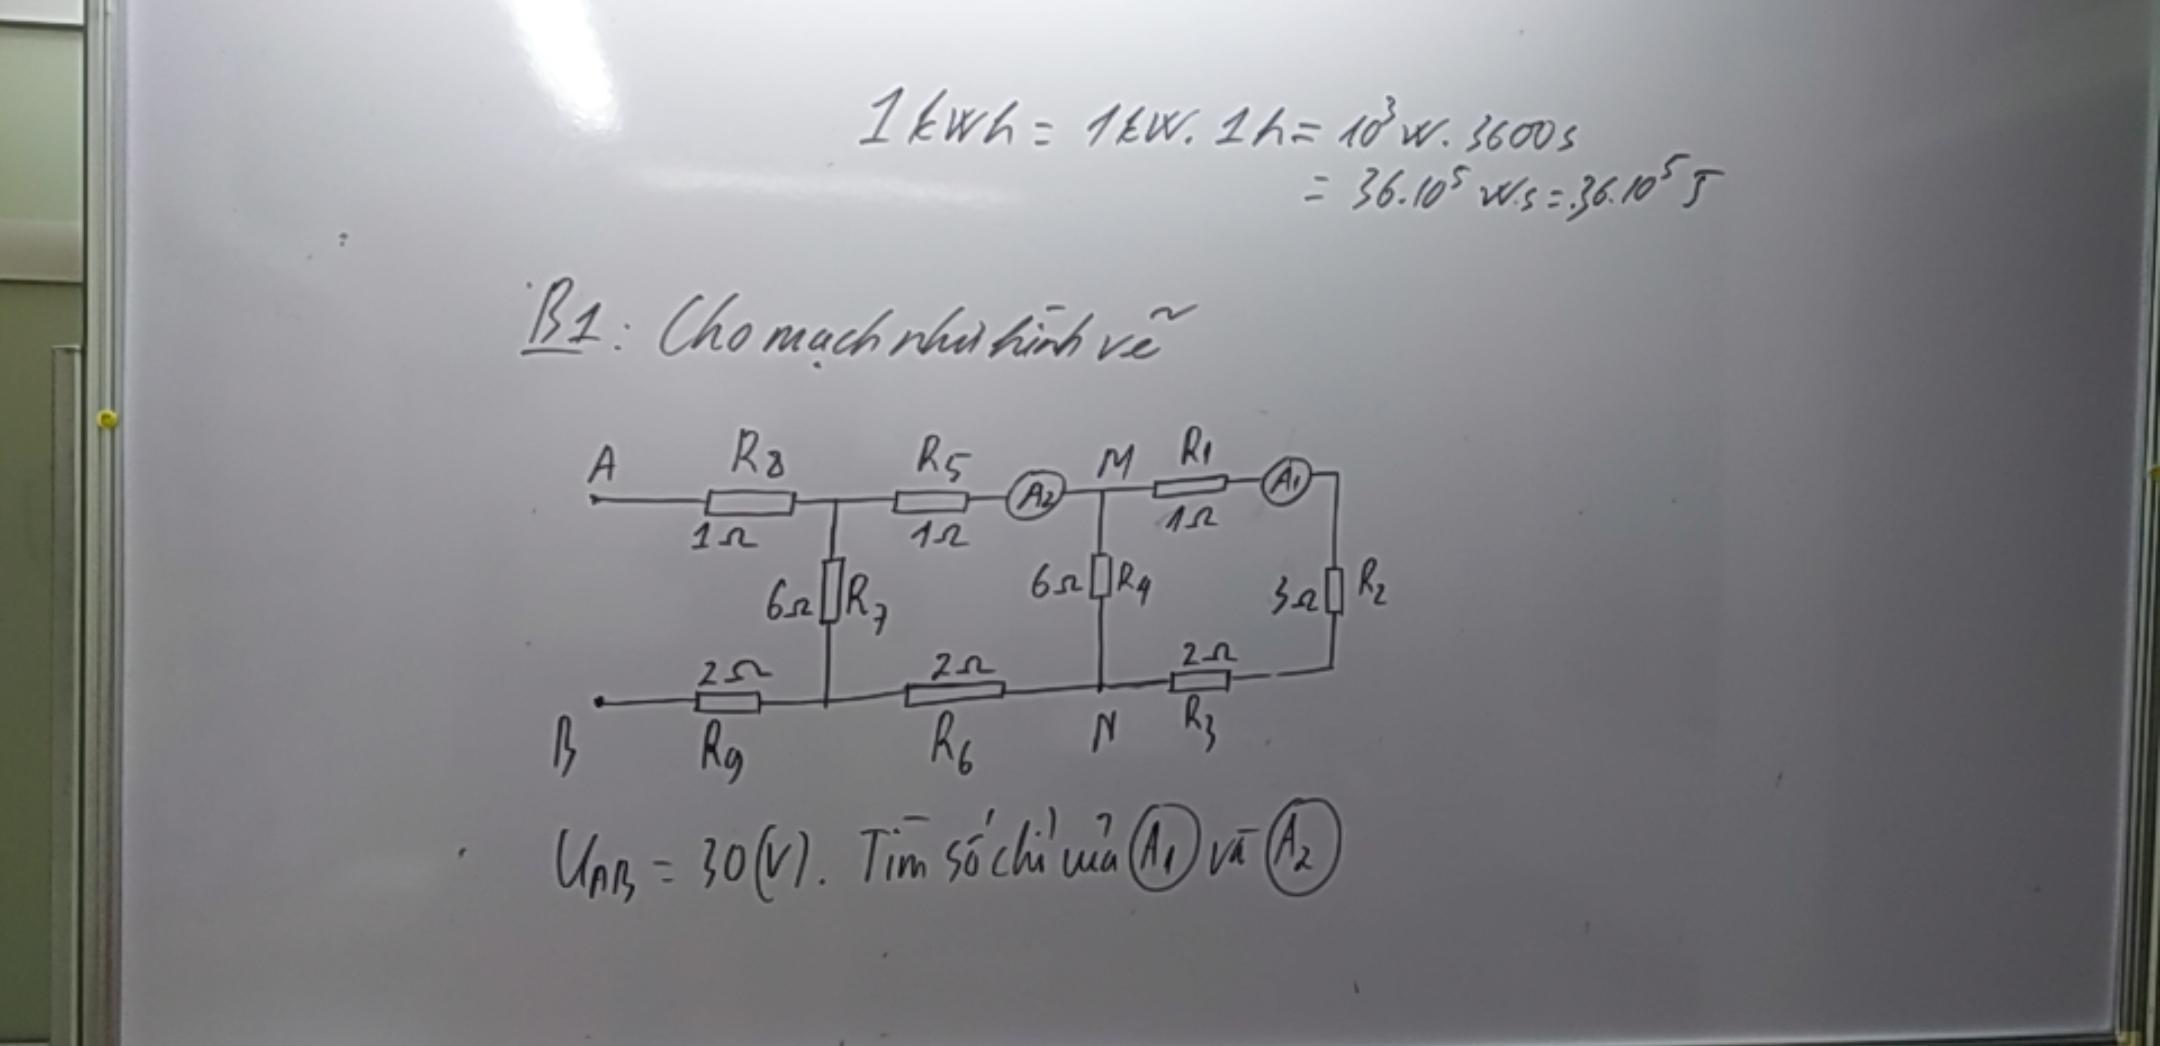 1kWh = 1kW. 1h = 10³W. 3600s
= 36.10⁵ W.s = 36.10⁵ J
B1: Cho mạch như hình vẽ
A R8 R5 A2 M R1 A1
1Ω 1Ω 1Ω
6Ω R7 6Ω R4 3Ω R2
2Ω 2Ω 2Ω
B R9 R6 N R3
UAB = 30(V). Tìm số chỉ của A1 và A2